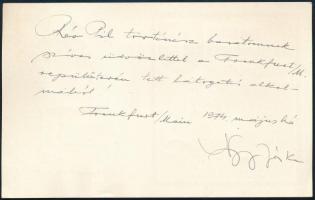 Rév Pál történész barátomnak
szíves üdvözlettel a Frankfurt/M.
repülőterén tett látogatás alkal-
mából!
Frankfurt/Main 1974. május hó